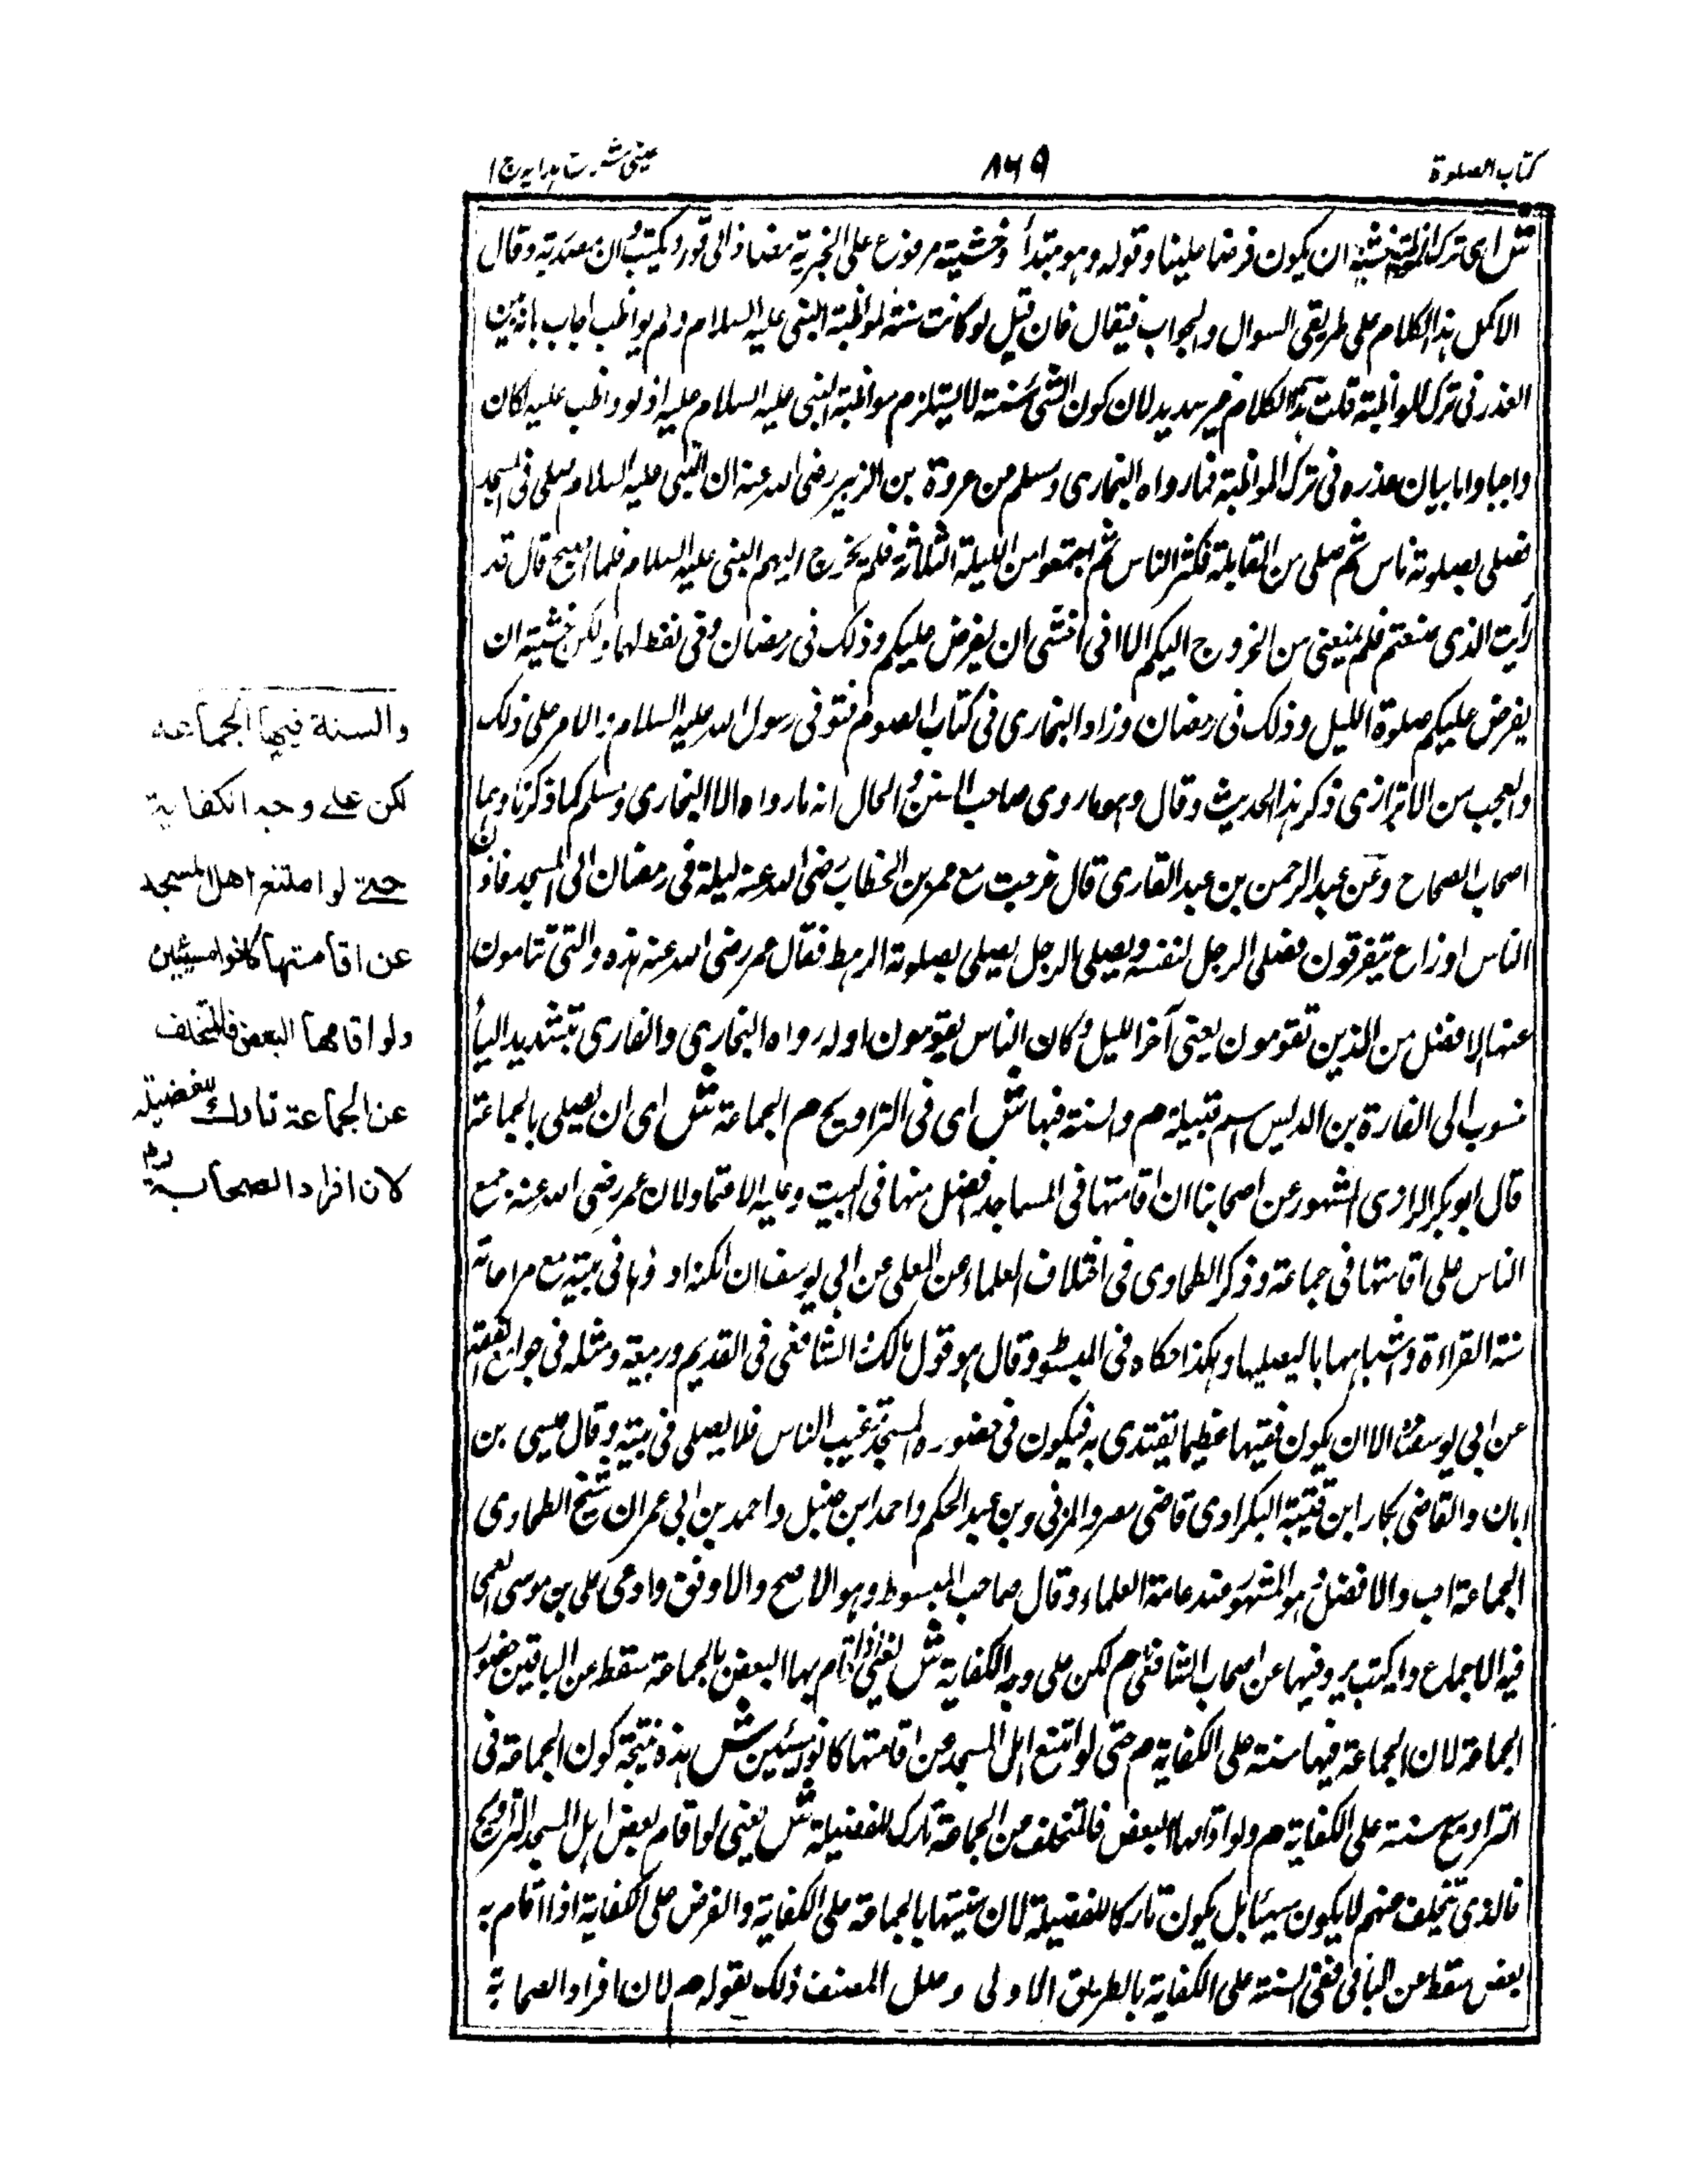 كتاب الصلوة
٨٦٩
عينى شرح هدايه ج ا
ش اى ترك المواظبة خشية ان يكون فرضا علينا وقوله وهو مبتدأ وخشية مرفوع على الخبرية مضاف الى ان مصدرية وقال
الاكمل هذا الكلام على طريقى السوال والجواب فيقال فان قيل لو كانت سنة لواظبه النبى عليه السلام ولم يواظب اجاب بانه بين
العذر فى ترك المواظبة قلت هذا الكلام غير سديد لان كون الشئ سنة لا يستلزم مواظبة النبى عليه السلام عليه اذ لو واظب عليه لكان
واجبا واما بيان عذره فى ترك المواظبة فما رواه البخارى ومسلم من عروة بن الزبير رضى الله عنه ان النبى عليه السلام صلى فى المسجد
فصلى بصلوته ناس ثم صلى من القابلة فكثر الناس ثم اجتمعوا من الليلة الثالثة فلم يخرج اليهم النبى عليه السلام فلما اصبح قال قد
رأيت الذى صنعتم فلم يمنعنى من الخروج اليكم الا انى اخشى ان يفرض عليكم وذلك فى رمضان وفى لفظ لهما ولكن خشية ان
يفرض عليكم صلوة الليل وذلك فى رمضان وزاد البخارى فى كتاب الصوم فتوفى رسول الله عليه السلام والامر على ذلك
والعجب من الاترازى ذكر هذا الحديث وقال وهو ما روى صاحب السنن والحال انه ما رواه الا البخارى ومسلم كما ذكرنا وهما
اصحاب الصحاح وعن عبد الرحمن بن عبد القارى قال خرجت مع عمر بن الخطاب رضى الله عنه ليلة فى رمضان الى المسجد فاذا
الناس اوزاع يتفرقون فصلى الرجل لنفسه ويصلى الرجل يصلى بصلوته الرهط فقال عمر رضى الله عنه هذه والتى تنامون
عنها الافضل من الذين تقومون يعنى آخر الليل وكان الناس يقومون اوله رواه البخارى والقارى بتشديد اليأ
منسوب الى القارة بن الديس اسم قبيلة م والسنة فيها ش اى فى التراويح م الجماعة ش اى ان يصلى بالجماعة
قال ابو بكر الرازى المشهور عن اصحابنا ان اقامتها فى المساجد افضل منها فى البيت وعليه الاعتماد لان عمر رضى الله عنه جمع
الناس على اقامتها فى جماعة وذكر الطحاوى فى اختلاف العلماء عن المعلى عن ابى يوسف ان امكنه اداؤها فى بيته مع مراعاة
سنة القراءة واشباهها باليصليها وهكذا حكاه فى المبسوط وقال هو قول مالك والشافعى فى القديم وربيعة ومثله فى جوامع الفقه
عن ابى يوسف الا ان يكون فقيها عظيما يقتدى به فيكون فى حضوره المسجد ترغيب الناس فلا يصلى فى بيته وقال عيسى بن
ابان والقاضى بكار ابن قتيبة البكراوى قاضى مصر والمزنى وبن عبد الحكم واحمد ابن حنبل واحمد بن ابى عمران شيخ الطحاوى
الجماعة احب والافضل وهو المشهور عند عامة العلماء وقال صاحب المبسوط وهو الاصح والاوفق وادعى على بن موسى القمى
فيه الاجماع عن اصحاب الشافعى م لكن على وجه الكفاية ش يعنى اذا قام بها البعض بالجماعة سقط عن الباقين حضور
الجماعة لان الجماعة فيها سنة على الكفاية م حتى لو امتنع اهل المسجد من اقامتها كانوا مسيئين ش هذه نتيجة كون الجماعة فى
التراويح سنة على الكفاية م ولو اقامها البعض فالمتخلف من الجماعة تارك للفضيلة ش يعنى لو اقام بعض اهل المسجد التراويح
فالذى تخلف منهم لا يكون مسيئا بل يكون تاركا للفضيلة لان سنيتها بالجماعة على الكفاية والفرض على الكفاية اذا اقام به
بعض سقط عن الباقى ففى السنة على الكفاية بالطريق الاولى وعلل المصنف ذلك بقوله م لان افراد الصحابة
والسنة فيها الجماعه
لكن على وجه الكفاية
حتے لو امتنع اهل المسجد
عن اقامتها كانوا مسيئين
ولو اقامها البعض فالمتخلف
عن الجماعة تارك للفضيلة
لان افراد الصحابة رض